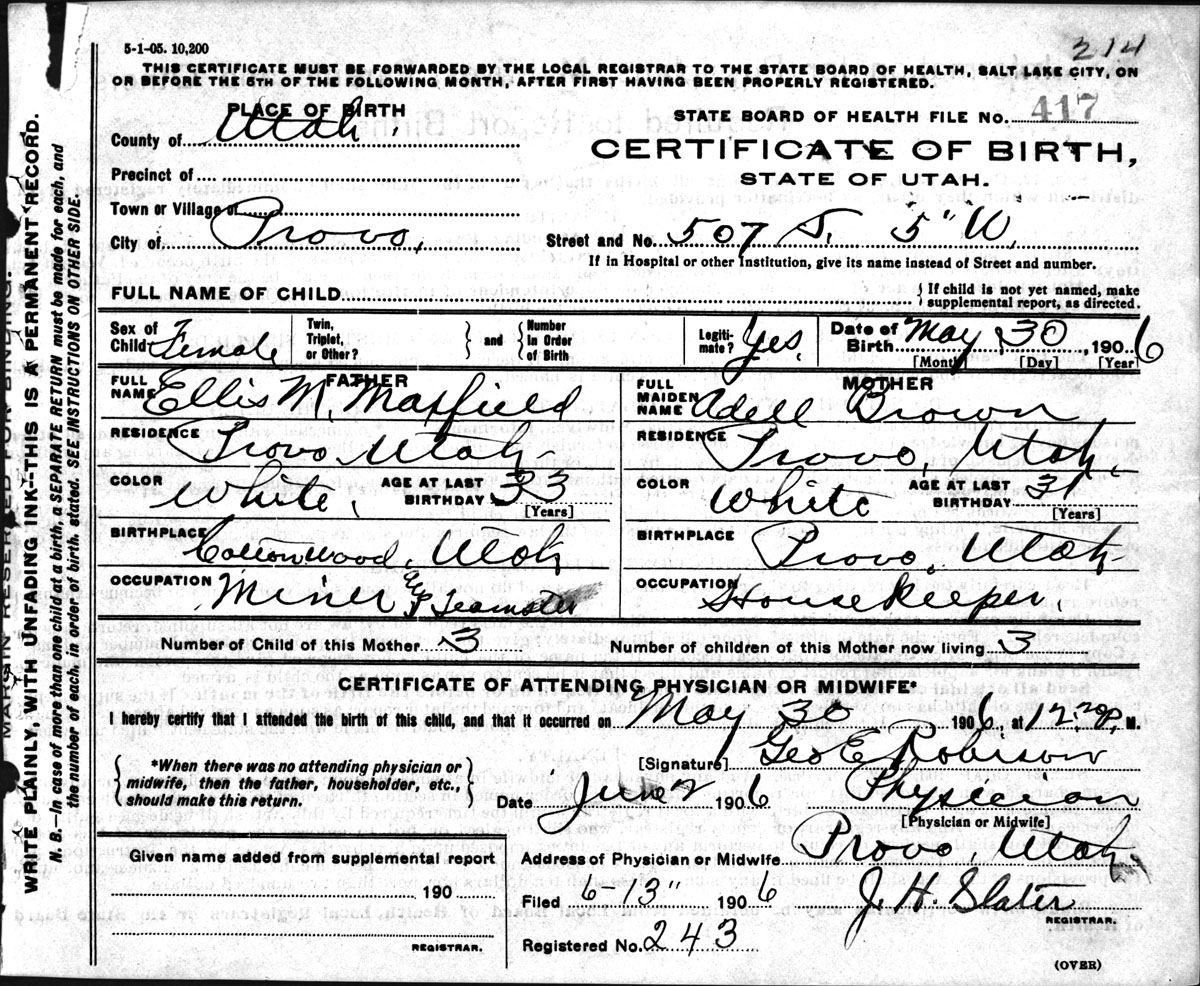 5-1-05. 10,200
214
THIS CERTIFICATE MUST BE FORWARDED BY THE LOCAL REGISTRAR TO THE STATE BOARD OF HEALTH, SALT LAKE CITY, ON
OR BEFORE THE 5TH OF THE FOLLOWING MONTH, AFTER FIRST HAVING BEEN PROPERLY REGISTERED.
PLACE OF BIRTH
STATE BOARD OF HEALTH FILE No. 417
County of Utah.
CERTIFICATE OF BIRTH,
Precinct of
STATE OF UTAH.
Town or Village of
City of Provo,
Street and No. 507 S. 5" W.
If in Hospital or other Institution, give its name instead of Street and number.
FULL NAME OF CHILD
{ If child is not yet named, make supplemental report, as directed.
Sex of Child Female
Twin, Triplet, or Other? } and { Number In Order of Birth
Legiti-mate? Yes.
Date of Birth May 30, 1906
[Month] [Day] [Year]
FATHER
FULL NAME Ellis M. Maxfield
RESIDENCE Provo Utah
COLOR White. AGE AT LAST BIRTHDAY 33
[Years]
BIRTHPLACE Cottonwood, Utah
OCCUPATION Miner & Teamster
MOTHER
FULL MAIDEN NAME Adell Brown
RESIDENCE Provo, Utah.
COLOR White AGE AT LAST BIRTHDAY 31
[Years]
BIRTHPLACE Provo, Utah
OCCUPATION Housekeeper.
Number of Child of this Mother 3
Number of children of this Mother now living 3
CERTIFICATE OF ATTENDING PHYSICIAN OR MIDWIFE*
I hereby certify that I attended the birth of this child, and that it occurred on May 30 1906, at 12 20 P. M.
{ *When there was no attending physician or
midwife, then the father, householder, etc.,
should make this return. }
[Signature] Geo E. Robison
Date June 2 1906 Physician
[Physician or Midwife]
Given name added from supplemental report
190
REGISTRAR.
Address of Physician or Midwife Provo, Utah.
Filed 6-13" 1906 J. H. Slater
REGISTRAR.
Registered No. 243
(OVER)
MARGIN RESERVED FOR BINDING.
WRITE PLAINLY, WITH UNFADING INK--THIS IS A PERMANENT RECORD.
N. B.—In case of more than one child at a birth, a SEPARATE RETURN must be made for each, and
the number of each, in order of birth, stated. SEE INSTRUCTIONS ON OTHER SIDE.